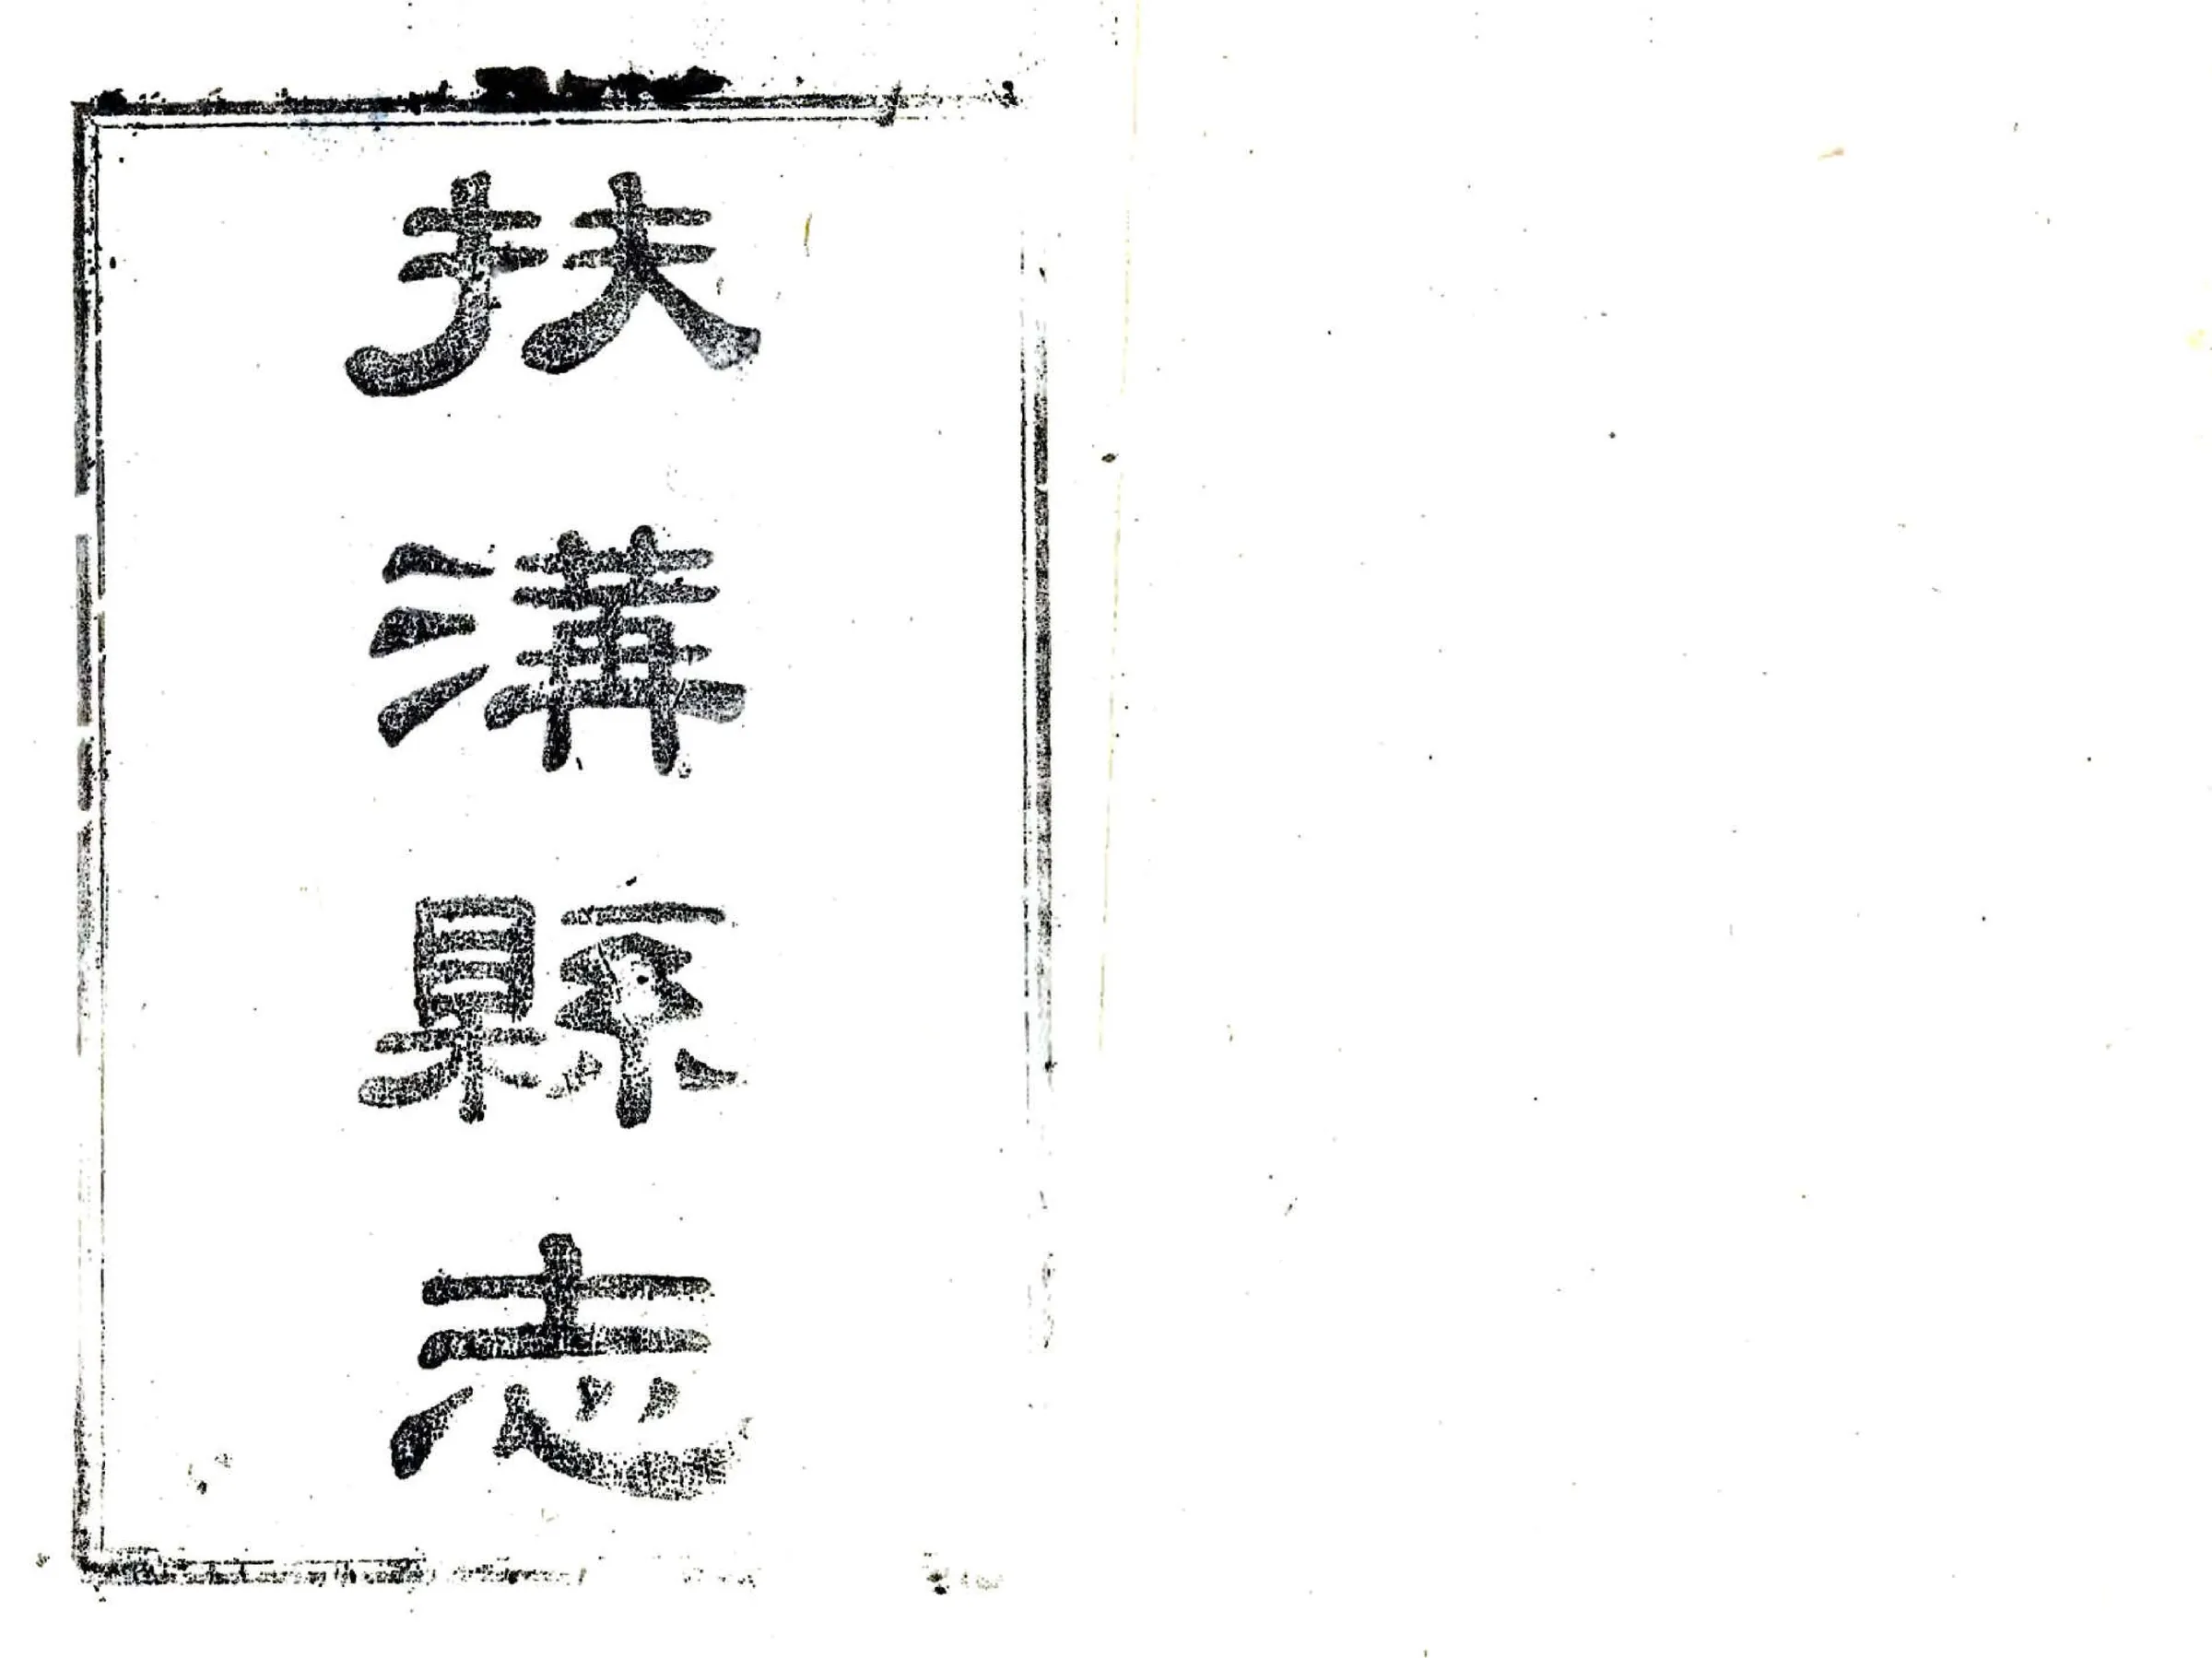 扶溝縣志